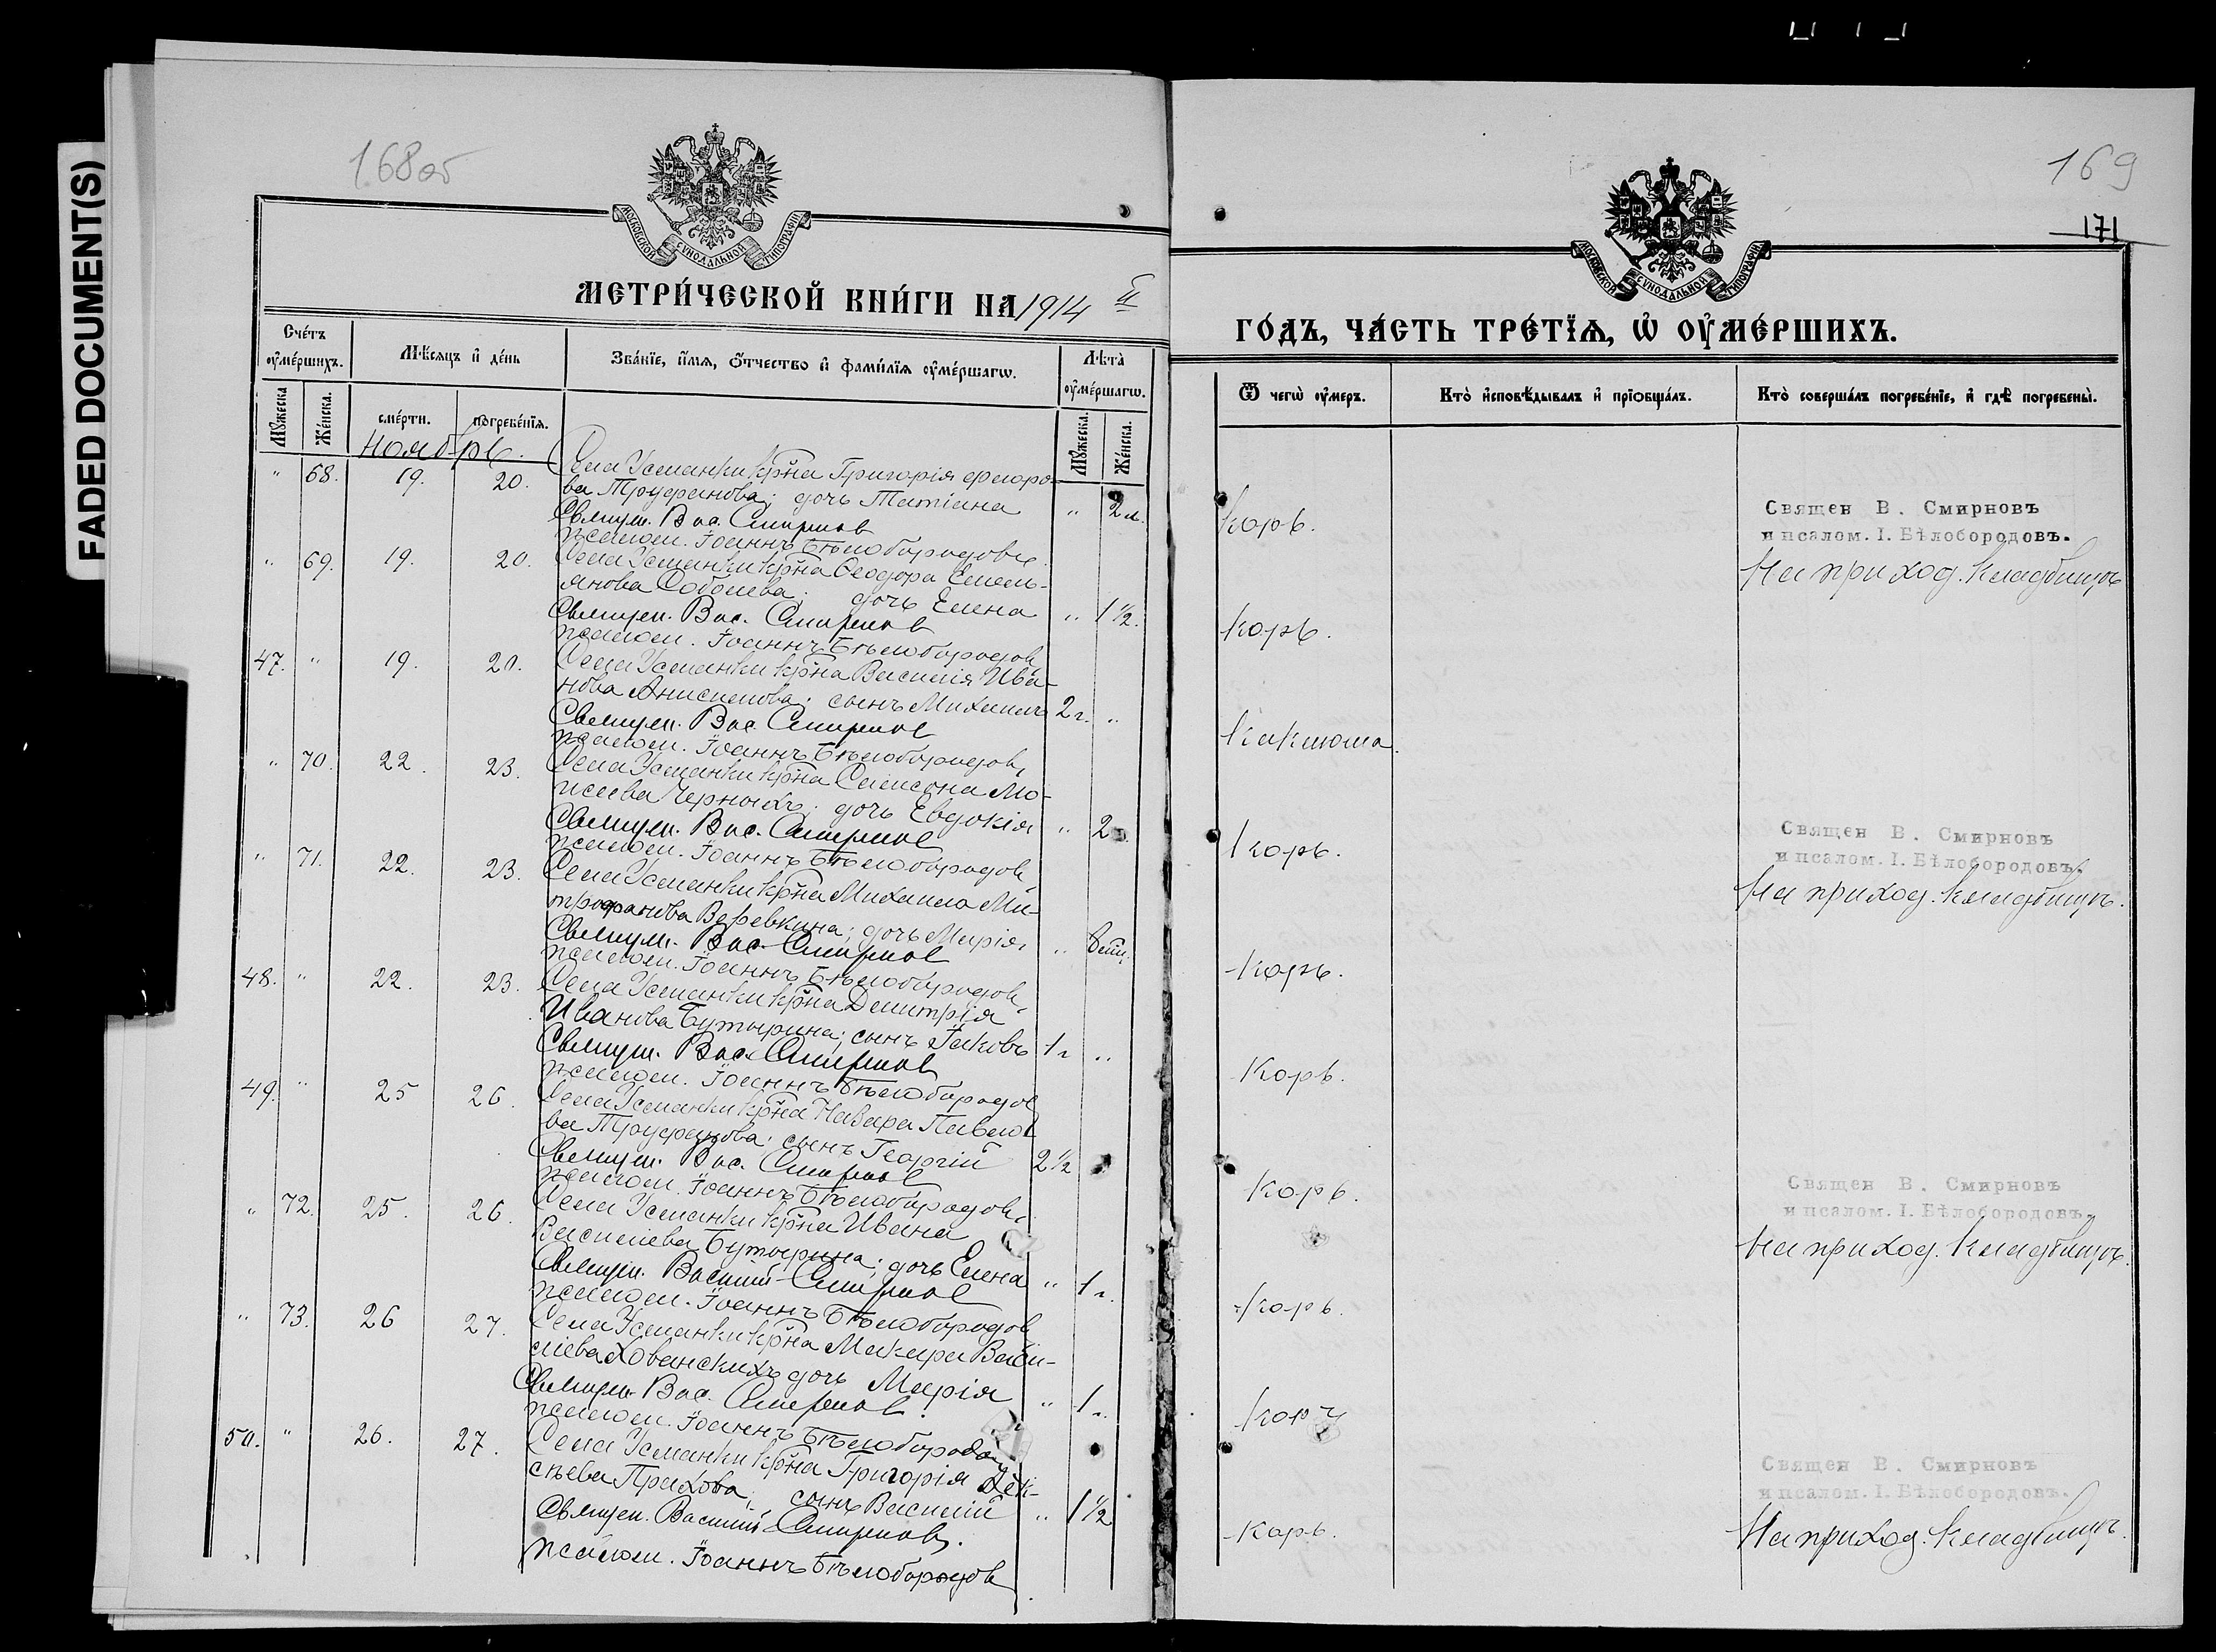 FADED DOCUMENT(S)
168об
МОСКОВСКОЙ СѴНОДАЛЬНОЙ ТИПОГРАФІИ
МЕТРИ́ЧЕСКОЙ КНИ́ГИ НА 1914 й
Сче́тъ ᲂу҆ме́ршихъ.
Мѣ́сяцъ и҆ де́нь
Зва́нїе, и҆́мѧ, ѻ҆́тчество и҆ фами́лїѧ ᲂу҆ме́ршагѡ.
Лѣ́та ᲂу҆ме́ршагѡ.
Мꙋ́жеска
Же́нска.
сме́рти.
погребе́нїѧ.
Мꙋ́жеска.
Же́нска.
Ноябрь.
" 68. 19. 20. Села Усманки кр-на Григорія Фиоро-
ва Труфанова; дочь Татіана " 2 л.
Священ. Вас. Смирнов
псалом. Іоаннъ Бѣлобородовъ
" 69. 19. 20. Села Усманки кр-на Ѳеодора Емель-
янова Соболева; дочь Елена " 1½.
Священ. Вас. Смирнов
псалом. Іоаннъ Бѣлобородов
47. " 19. 20. Села Усманки кр-на Василія Ива-
нова Анисимова; сынъ Михаилъ 2 г. "
Священ. Вас. Смирнов
псалом. Іоаннъ Бѣлобородов
" 70. 22. 23. Села Усманки кр-на Самсона Мо-
исеева Черныхъ; дочь Евдокія " 2
Священ. Вас. Смирнов
псалом. Іоаннъ Бѣлобородов
" 71. 22. 23. Села Усманки кр-на Михаила Ми-
трофанова Веревкина; дочь Марія "
Священ. Вас. Смирнов
псалом. Іоаннъ Бѣлобородов
48. " 22. 23. Села Усманки кр-на Димитрія
Иванова Бутырина; сынъ Іаковъ 1 г "
Священ. Вас. Смирнов
псалом. Іоаннъ Бѣлобородов
49. " 25 26. Села Усманки кр-на Назара Павло-
ва Труфанова; сынъ Георгій 2½
Священ. Вас. Смирнов
псалом. Іоаннъ Бѣлобородов
" 72. 25. 26. Села Усманки кр-на Ивана
Василіева Бутырина; дочь Елена " 1 г.
Священ. Василій Смирнов
псалом. Іоаннъ Бѣлобородов
" 73. 26 27. Села Усманки кр-на Макара Васи-
ліева Хованскихъ дочь Марія " 1 г.
Священ. Вас. Смирнов.
псалом. Іоаннъ Бѣлобородов
50. " 26. 27. Села Усманки кр-на Григорія Алек-
сѣева Прахова; сынъ Василій " 1½
Священ. Василий Смирновъ.
псалом. Іоаннъ Бѣлобородов
169
171
МОСКОВСКОЙ СѴНОДАЛЬНОЙ ТИПОГРАФІИ
ГО́ДЪ, ЧА́СТЬ ТРЕ́ТЇѦ, Ѡ҆ ОУ҆МЕ́РШИХЪ.
Ѿ чегѡ̀ ᲂу҆́меръ.
Кто̀ и҆сповѣ́дывалъ и҆ прїѡбща́лъ.
Кто̀ соверша́лъ погребе́нїе, и҆ гдѣ̀ погребены̀.
Корь.
Священ В. Смирновъ
и псалом. І. Бѣлобородовъ.
На приход. кладбищѣ
Корь.
Коклюша.
Корь.
Священ В. Смирновъ
и псалом. І. Бѣлобородовъ.
На приход. кладбищѣ.
Корь.
Корь.
Корь.
Священ В. Смирновъ
и псалом. І. Бѣлобородовъ.
На приход. кладбищѣ.
Корь.
Корь
Священ В. Смирновъ
и псалом. І. Бѣлобородовъ.
Корь.
На приход. кладбищѣ.